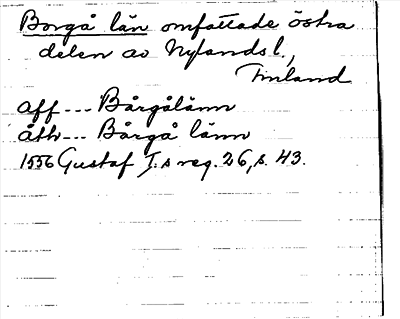 Borgå län omfattade östra
delen av Nylandsl.,
Finland
aff --- Bårgålänn
åth --- Bårgå länn
1556 Gustaf I:s reg. 26, s. 43.